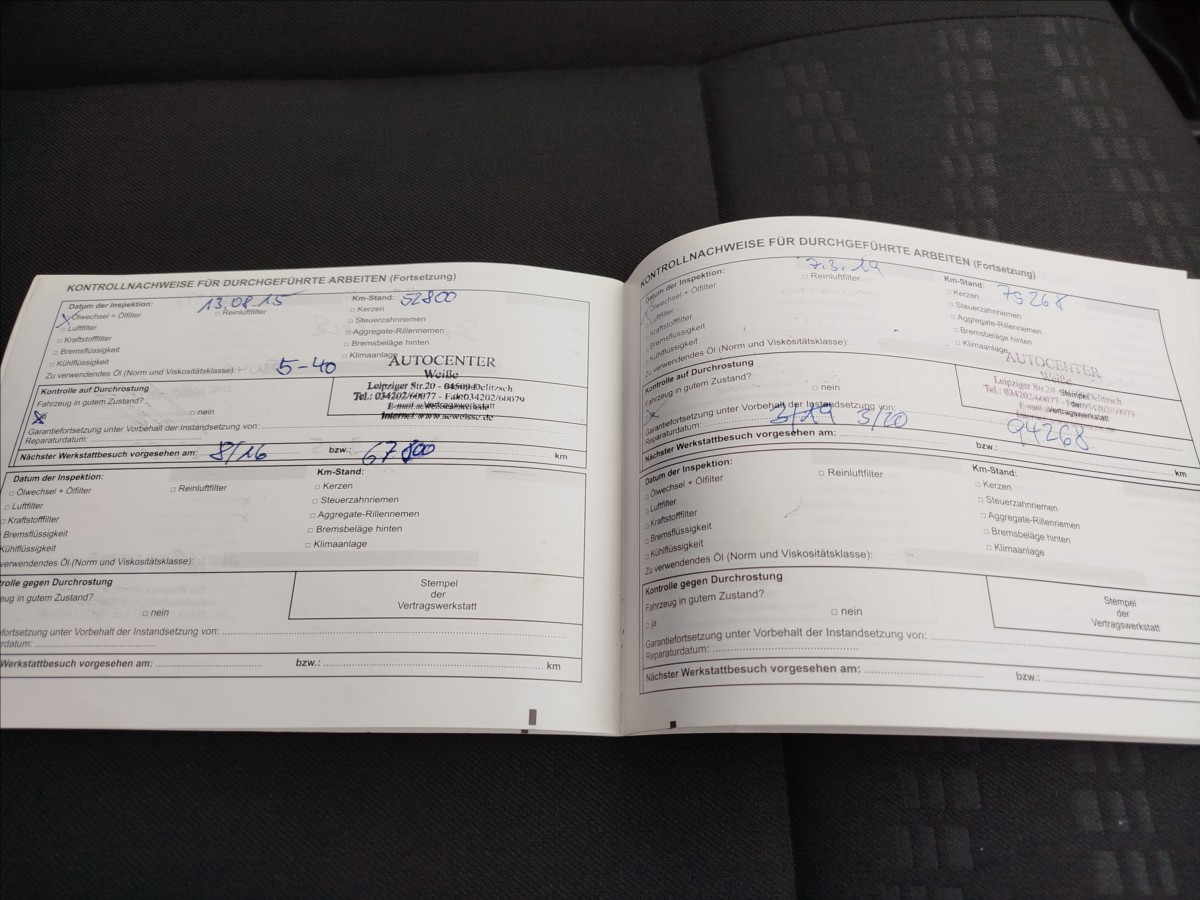 KONTROLLNACHWEISE FÜR DURCHGEFÜHRTE ARBEITEN (Fortsetzung)
Datum der Inspektion: 13.08.15 Km-Stand: 52800
Ölwechsel + Ölfilter □ Reinluftfilter □ Kerzen
□ Luftfilter □ Steuerzahnriemen
□ Kraftstofffilter □ Aggregate-Rillenriemen
□ Bremsflüssigkeit □ Bremsbeläge hinten
□ Kühlflüssigkeit □ Klimaanlage
Zu verwendendes Öl (Norm und Viskositätsklasse): 5-40
AUTOCENTER
Weiße
Leipziger Str.20 - 04509 Delitzsch
Tel.: 034202/60077 - Fax: 034202/60079
Internet: www.ac-weisse.de
Kontrolle auf Durchrostung
Fahrzeug in gutem Zustand?
□ nein
Garantiefortsetzung unter Vorbehalt der Instandsetzung von:
Reparaturdatum:
Nächster Werkstattbesuch vorgesehen am: 8/16 bzw.: 67800 km
Datum der Inspektion: Km-Stand:
□ Ölwechsel + Ölfilter □ Reinluftfilter □ Kerzen
□ Luftfilter □ Steuerzahnriemen
□ Kraftstofffilter □ Aggregate-Rillenriemen
Bremsflüssigkeit □ Bremsbeläge hinten
Kühlflüssigkeit □ Klimaanlage
verwendendes Öl (Norm und Viskositätsklasse):
rolle gegen Durchrostung
eug in gutem Zustand?
□ nein
Stempel
der
Vertragswerkstatt
fortsetzung unter Vorbehalt der Instandsetzung von:
rdatum:
Werkstattbesuch vorgesehen am: bzw.: km
KONTROLLNACHWEISE FÜR DURCHGEFÜHRTE ARBEITEN (Fortsetzung)
Datum der Inspektion: 7.3.19 Km-Stand: 79268
Ölwechsel + Ölfilter □ Reinluftfilter □ Kerzen
Luftfilter □ Steuerzahnriemen
□ Kraftstofffilter □ Aggregate-Rillenriemen
□ Bremsflüssigkeit □ Bremsbeläge hinten
□ Kühlflüssigkeit □ Klimaanlage
Zu verwendendes Öl (Norm und Viskositätsklasse):
AUTOCENTER
Weiße
Leipziger Str.20 - Delitzsch
Tel.: 034202/60077 - Fax:034202/60079
Stempel
der
Vertragswerkstatt
Kontrolle auf Durchrostung
Fahrzeug in gutem Zustand?
□ nein
Garantiefortsetzung unter Vorbehalt der Instandsetzung von:
Reparaturdatum:
Nächster Werkstattbesuch vorgesehen am: 3/19 3/20 bzw.: 94268 km
Datum der Inspektion: Km-Stand:
□ Ölwechsel + Ölfilter □ Reinluftfilter □ Kerzen
□ Luftfilter □ Steuerzahnriemen
□ Kraftstofffilter □ Aggregate-Rillenriemen
□ Bremsflüssigkeit □ Bremsbeläge hinten
□ Kühlflüssigkeit □ Klimaanlage
Zu verwendendes Öl (Norm und Viskositätsklasse):
Kontrolle gegen Durchrostung
Fahrzeug in gutem Zustand?
□ ja □ nein
Stempel
der
Vertragswerkstatt
Garantiefortsetzung unter Vorbehalt der Instandsetzung von:
Reparaturdatum:
Nächster Werkstattbesuch vorgesehen am: bzw.: